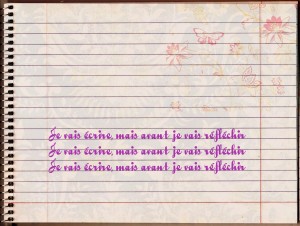 Je vais écrire, mais avant je vais réfléchir
Je vais écrire, mais avant je vais réfléchir
Je vais écrire, mais avant je vais réfléchir